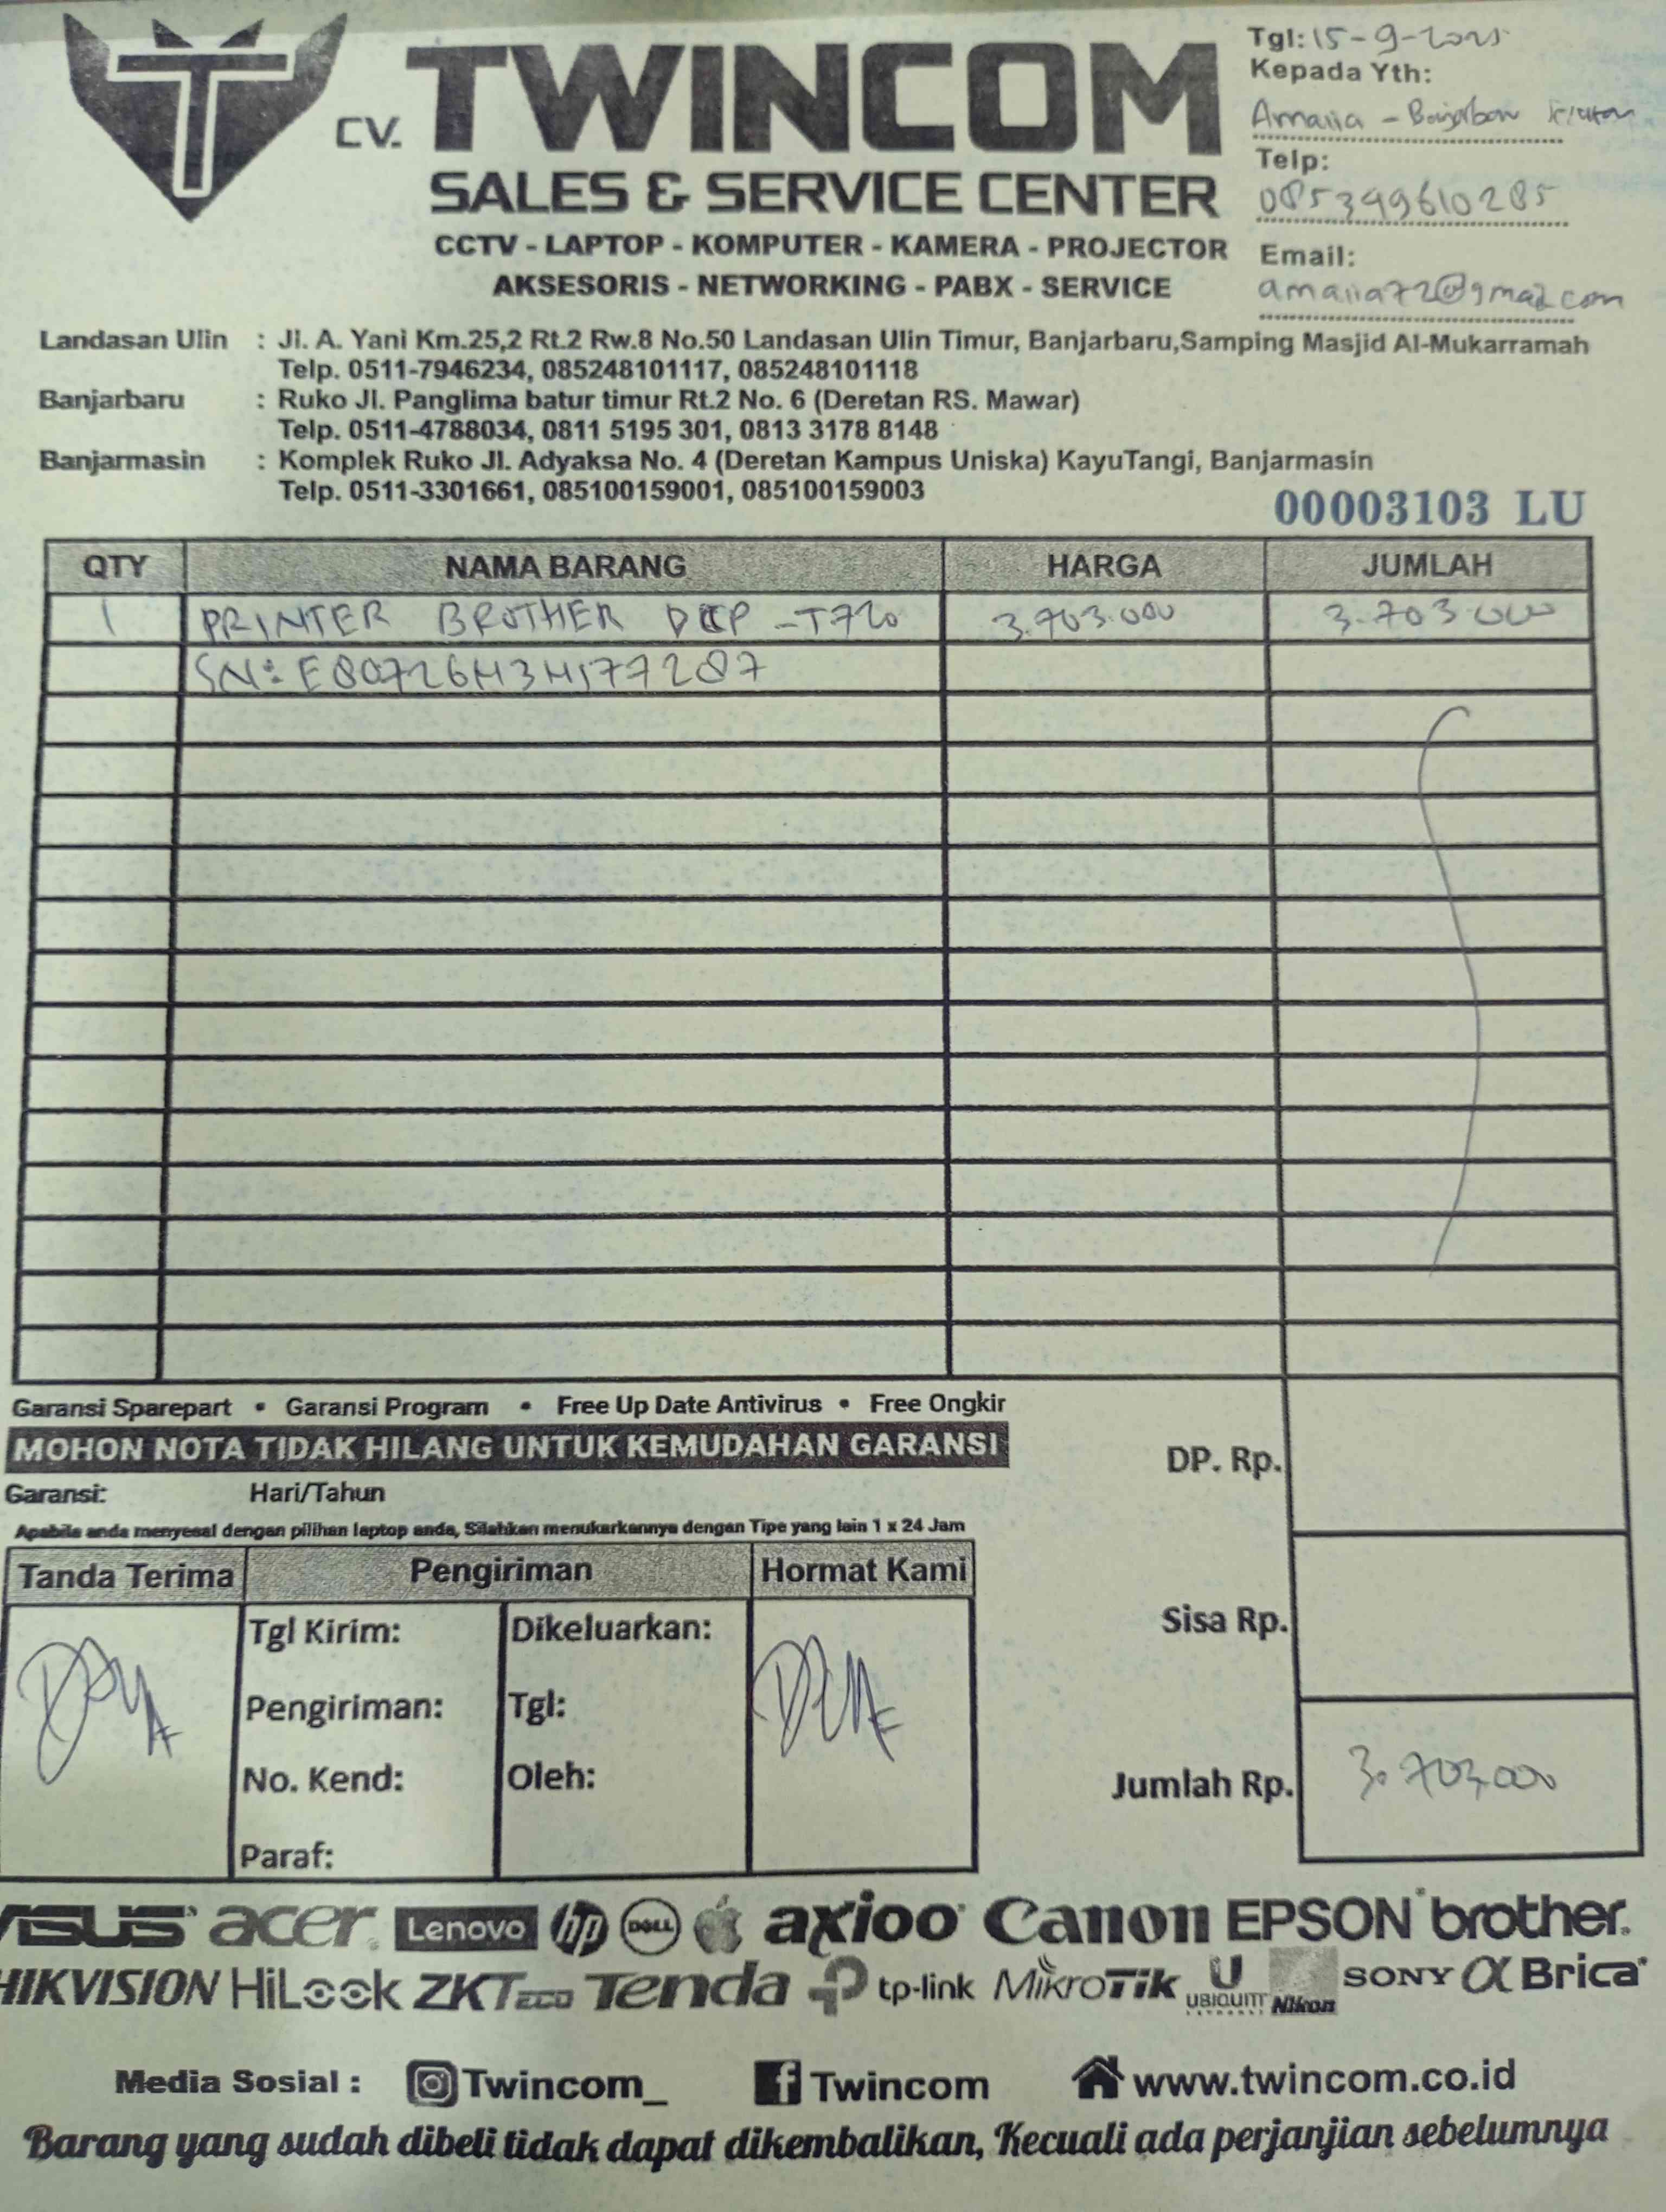 CV. TWINCOM
SALES & SERVICE CENTER
CCTV - LAPTOP - KOMPUTER - KAMERA - PROJECTOR
AKSESORIS - NETWORKING - PABX - SERVICE
Tgl: 15-9-2025
Kepada Yth:
Amalia -
Telp:
0853499610285
Email:
amalia72@gmail.com
Landasan Ulin : Jl. A. Yani Km.25,2 Rt.2 Rw.8 No.50 Landasan Ulin Timur, Banjarbaru,Samping Masjid Al-Mukarramah
Telp. 0511-7946234, 085248101117, 085248101118
Banjarbaru : Ruko Jl. Panglima batur timur Rt.2 No. 6 (Deretan RS. Mawar)
Telp. 0511-4788034, 0811 5195 301, 0813 3178 8148
Banjarmasin : Komplek Ruko Jl. Adyaksa No. 4 (Deretan Kampus Uniska) KayuTangi, Banjarmasin
Telp. 0511-3301661, 085100159001, 085100159003
00003103 LU
QTY NAMA BARANG HARGA JUMLAH
1 PRINTER BROTHER DCP -T720 3.703.000 3.703.000
SN:
Garansi Sparepart • Garansi Program • Free Up Date Antivirus • Free Ongkir
MOHON NOTA TIDAK HILANG UNTUK KEMUDAHAN GARANSI
Garansi: Hari/Tahun
Apabila anda menyesal dengan pilihan laptop anda, Silahkan menukarkannya dengan Tipe yang lain 1 x 24 Jam
DP. Rp.
Sisa Rp.
Jumlah Rp. 3.703.000
Tanda Terima Pengiriman Hormat Kami
Tgl Kirim: Dikeluarkan:
Pengiriman: Tgl:
No. Kend: Oleh:
Paraf:
ASUS acer Lenovo hp DELL axioo Canon EPSON brother
HIKVISION HiLook ZKTeco Tenda tp-link MikroTik U UBIQUITI NETWORKS Nikon SONY α Brica
Media Sosial : Twincom_ f Twincom www.twincom.co.id
Barang yang sudah dibeli tidak dapat dikembalikan, Kecuali ada perjanjian sebelumnya